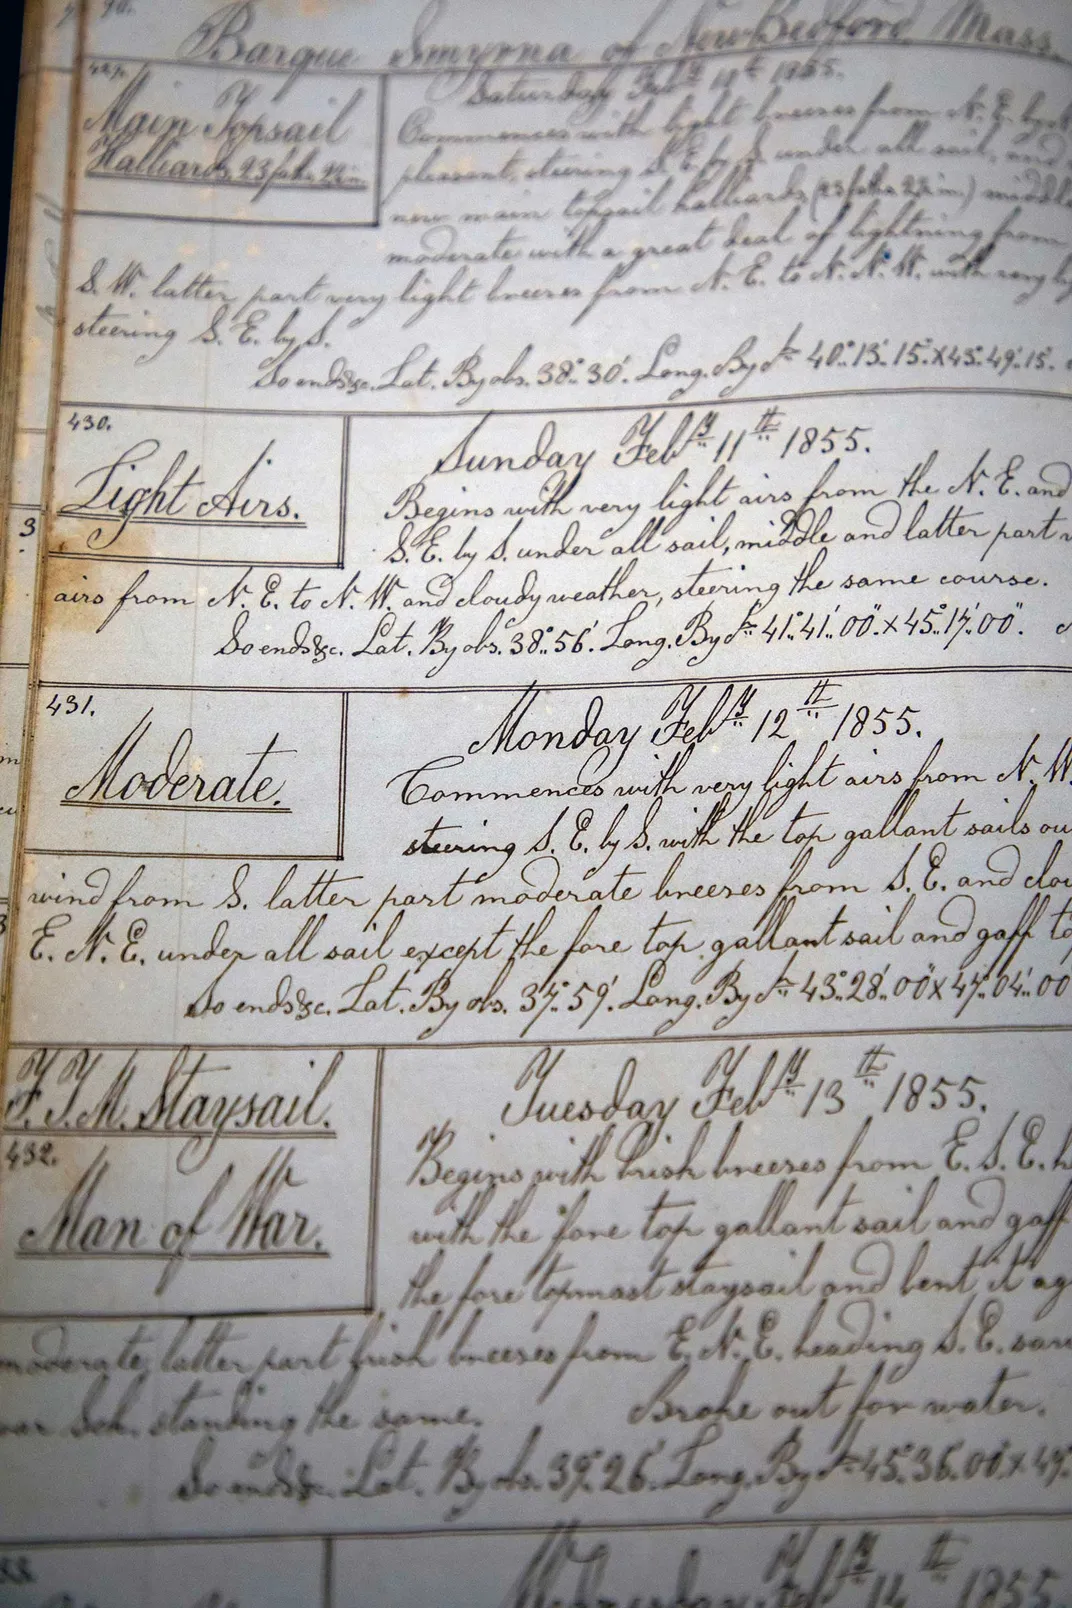 Barque Smyrna of New Bedford Mass.
Main Topsail
Halliards, 23 faths. 2½ in.
Saturday Feb.ʸ 10th 1855.
Commences with light breezes from N. E. by
pleasant, steering S. E. by S. under all sail, and
new main topsail halliards, (23 faths. 2½ in.) middle
moderate with a great deal of lightning from
S. W. latter part very light breezes from N. E. to N. N. W. with very
steering S. E. by S.
So ends &c. Lat. By obs. 38° 30'. Long. By 40° 13' 15" X 43° 49' 15".
430.
Light Airs.
Sunday Feb.ʸ 11th 1855.
Begins with very light airs from the N. E. and
S. E. by S. under all sail, middle and latter part
airs from N. E. to N. W. and cloudy weather, steering the same course.
3
So ends &c. Lat. By obs. 38° 56'. Long. By 41° 41' 00" X 45° 17' 00".
431.
Moderate.
Monday Feb.ʸ 12th 1855.
Commences with very light airs from N. W.
steering S. E. by S. with the top gallant sails
wind from S. latter part moderate breezes from S. E. and
E. N. E. under all sail except the fore top gallant sail and gaff
So ends &c. Lat. By obs. 37° 59'. Long. By 43° 28' 00" X 47° 04' 00
F. T. M. Staysail.
432.
Man of War.
Tuesday Feb.ʸ 13th 1855.
Begins with brisk breezes from E. S. E.
with the fore top gallant sail and gaff
the fore topmast staysail and bent it
moderate, latter part brisk breezes from E. N. E. heading S. E.
war Sch. standing the same. Broke out for water.
So ends &c. Lat. By obs. 39° 26'. Long. By 45° 36' 00" X
Wednesday Feb.ʸ 14th 1855.